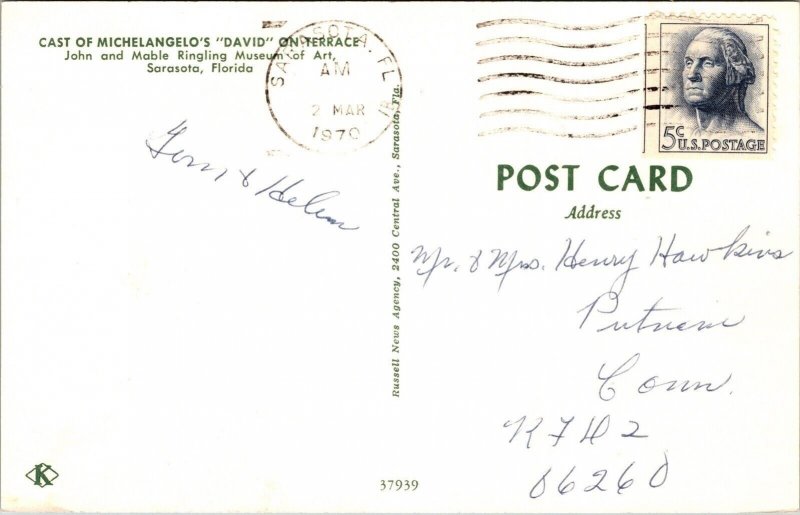 CAST OF MICHELANGELO'S "DAVID" ON TERRACE
John and Mable Ringling Museum of Art,
Sarasota, Florida
SARASOTA, FL
AM
2 MAR
1970
& Helen
K
Russell News Agency, 2400 Central Ave., Sarasota, Fla.
37939
5c
U.S. POSTAGE
POST CARD
Address
Mr. & Mrs. Henry Hawkins
Putnam
Conn.
RFD 2
06260